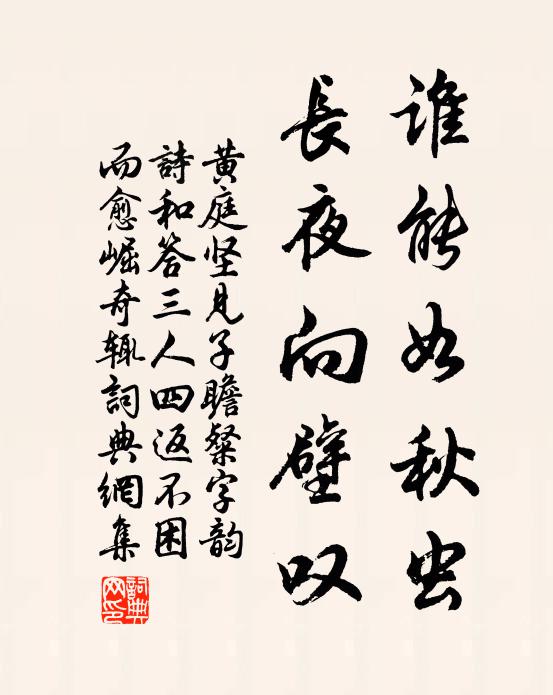 谁能如秋虫
長夜向壁叹
黄庭坚見子瞻粲字韵
詩和答三人四返不困
而愈崛奇辄詞典網集
詞典
网印